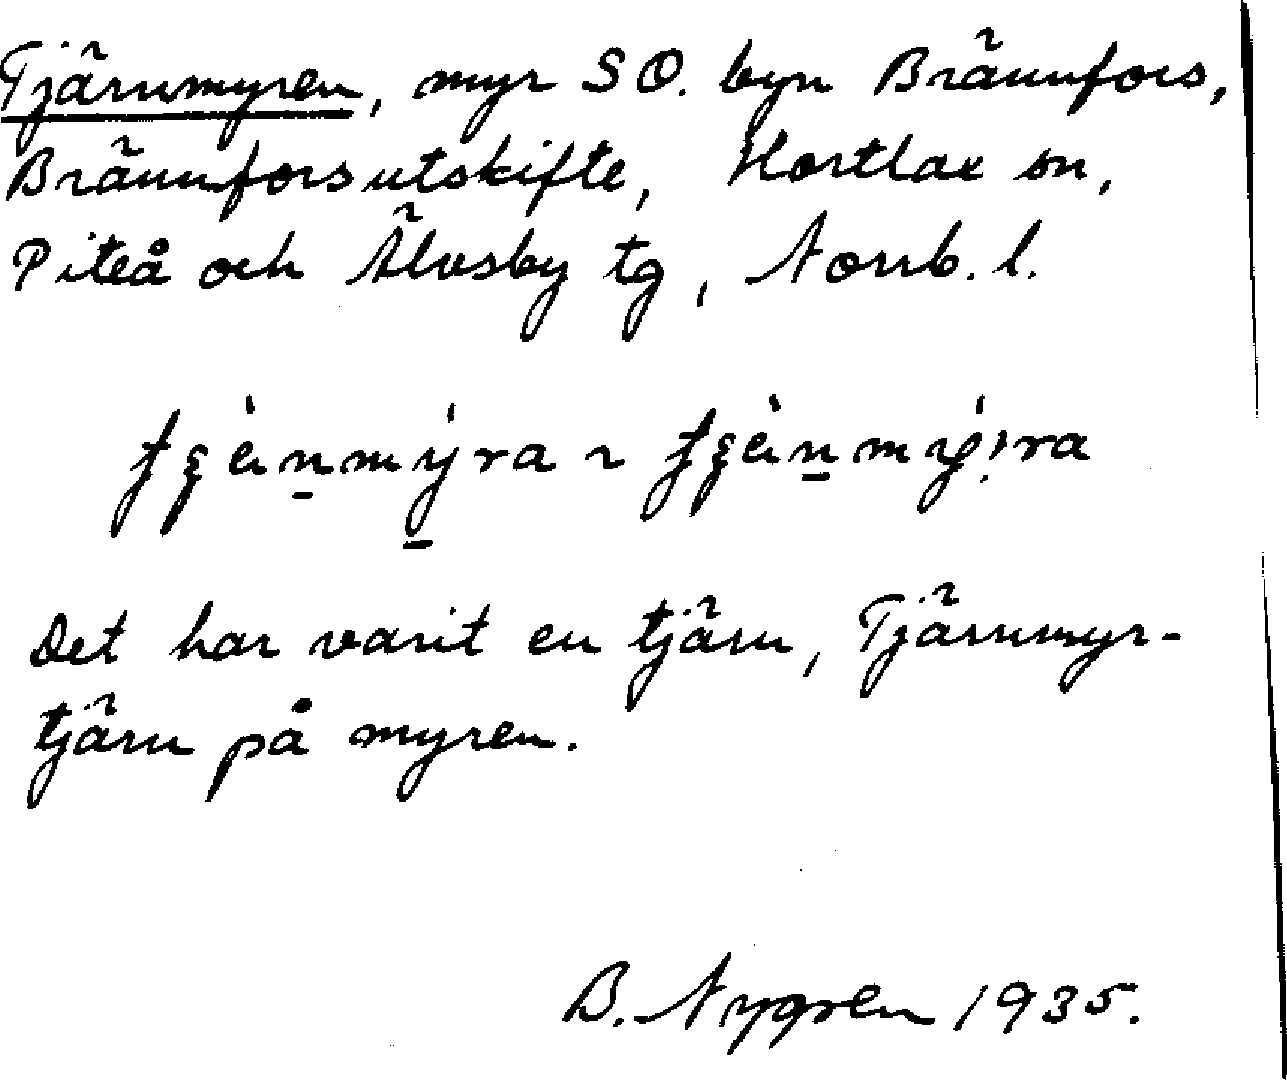 Tjärnmyren, myr SO. byn Brännfors,
Brännforsutskifte, Hortlax sn,
Piteå och Älvsby tg, Norrb. l.
Det har varit en tjärn, Tjärnmyr-
tjärn på myren.
B. Nygren 1935.